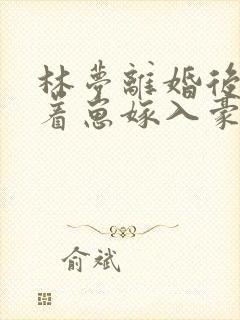 林夢離婚後
着崽嫁入豪
俞斌